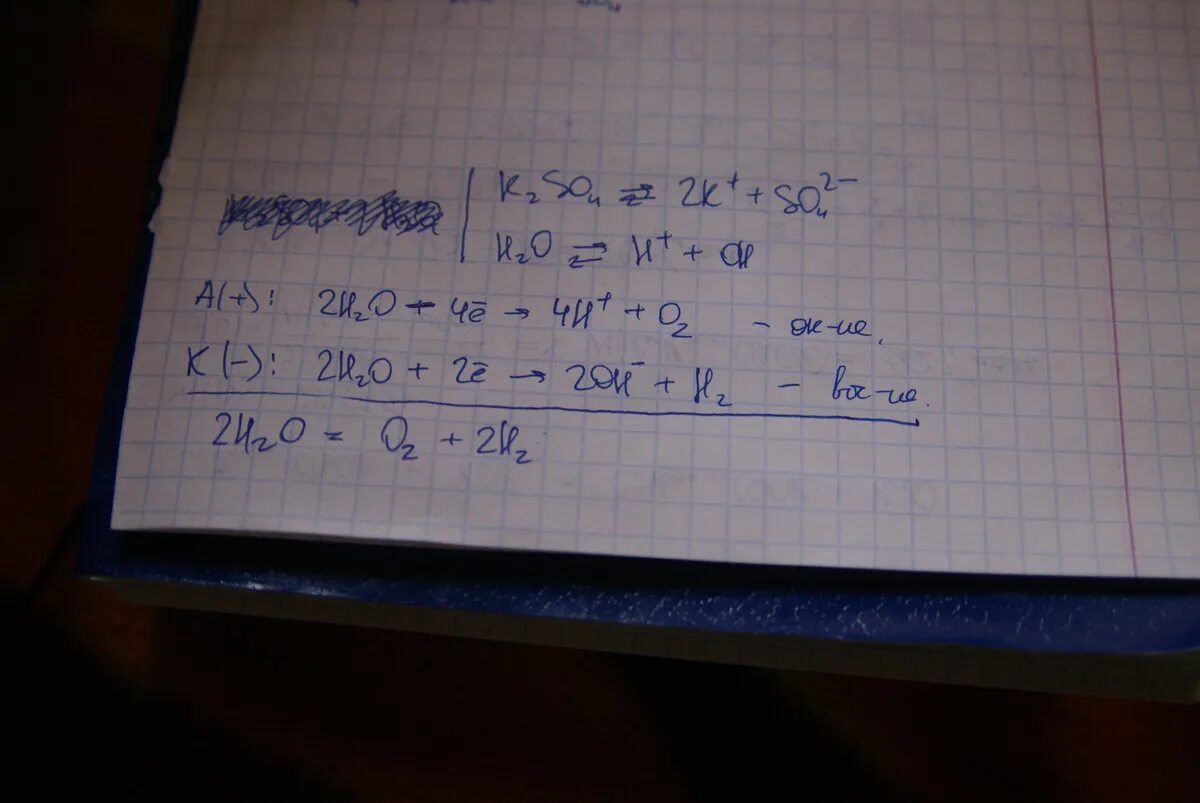 K₂SO₄ ⇄ 2K⁺ + SO₄²⁻
H₂O ⇄ H⁺ + OH
A(+): 2H₂O - 4ē → 4H⁺ + O₂ - ок-ие.
K(-): 2H₂O + 2ē → 2OH⁻ + H₂ - вос-ие.
2H₂O = O₂ + 2H₂